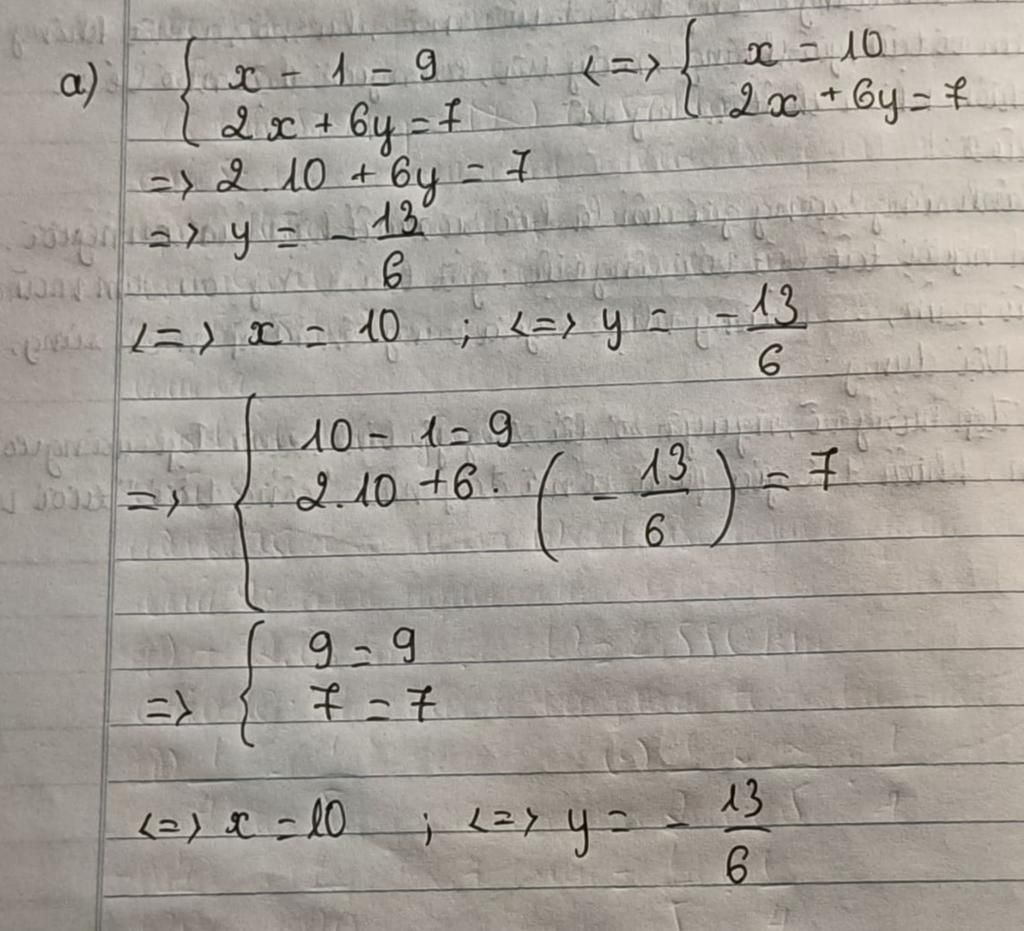 a) { x - 1 = 9 <=> { x = 10
2x + 6y = 7 2x + 6y = 7
=> 2.10 + 6y = 7
=> y = - 13/6
<=> x = 10 ; <=> y = - 13/6
=> { 10 - 1 = 9
2.10 + 6. (- 13/6) = 7
=> { 9 = 9
7 = 7
<=> x = 10 ; <=> y = - 13/6